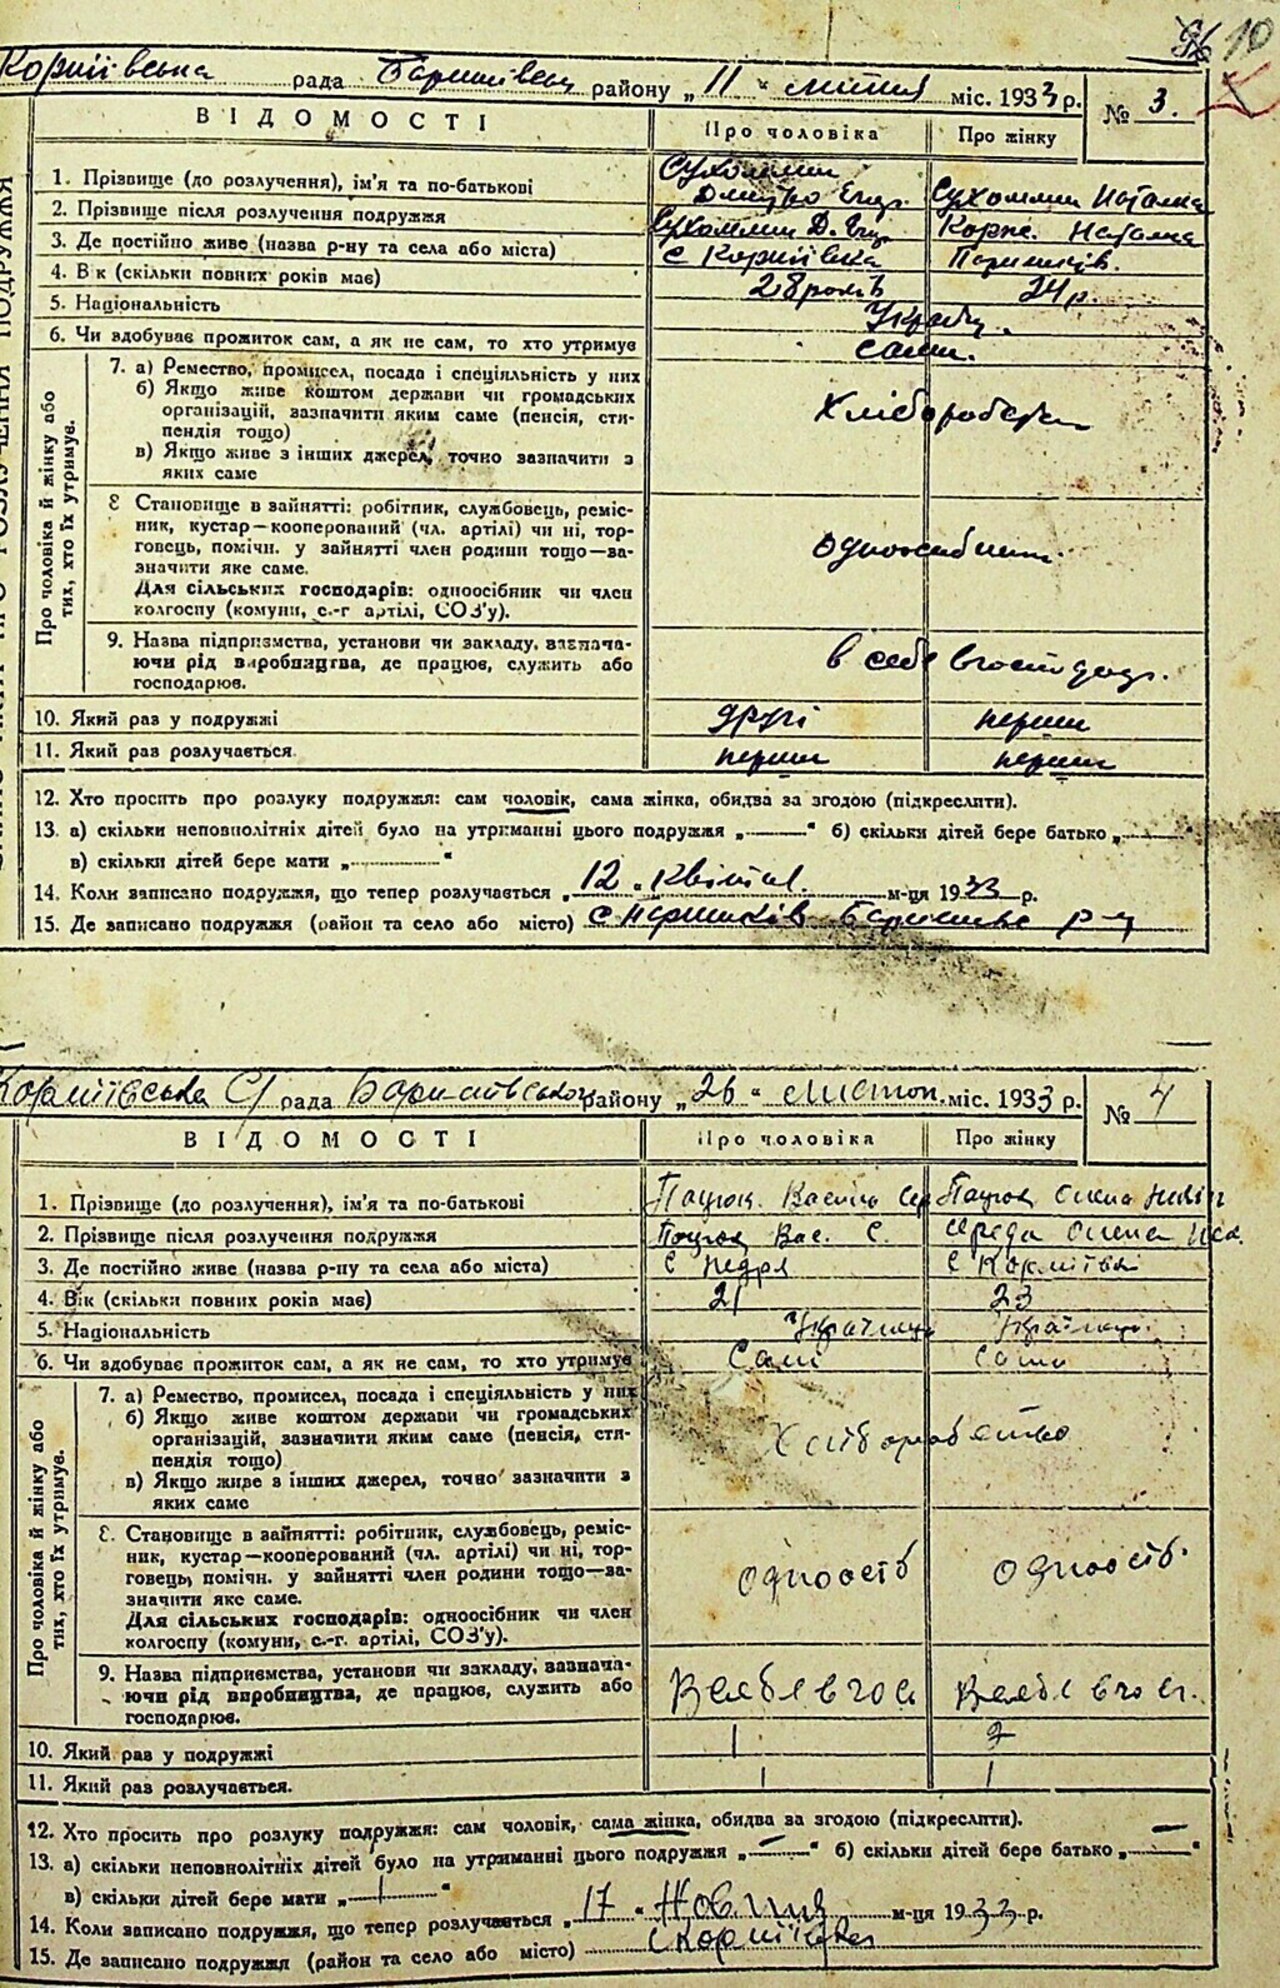 96 10
Корніївська рада Баришівськ району „ 11 " липня міс. 1933 р. № 3.
ВІДОМОСТІ Про чоловіка Про жінку
Сухомлин
1. Прізвище (до розлучення), ім'я та по-батькові Дмитро Сухомлин Наталка
2. Прізвище після розлучення подружжя Сухомлин Д. Корж. Наталка
3. Де постійно живе (назва р-ну та села або міста) с Корніївка Паришків.
4. В к (скільки повних років має) 28 років 24 р.
5. Національність
6. Чи здобуває прожиток сам, а як не сам, то хто утримує сами.
Про чоловіка й жінку або тих, хто їх утримує.
7. а) Ремество, промисел, посада і спеціяльність у них
б) Якщо живе коштом держави чи громадських
організацій, зазначити яким саме (пенсія, сти-
пендія тощо)
в) Якщо живе з інших джерел, точно зазначити з
яких саме
8 Становище в зайнятті: робітник, службовець, реміс-
ник, кустар—кооперований (чл. артілі) чи ні, тор-
говець, помічн. у зайнятті член родини тощо—за-
значити яке саме.
Для сільських господарів: одноосібник чи член
колгоспу (комуни, с.-г артілі, СОЗ'у).
9. Назва підприємства, установи чи закладу, зазнача-
ючи рід виробництва, де працює, служить або
господарює. в себе в господар.
10. Який раз у подружжі другі перши
11. Який раз розлучається перши перши
12. Хто просить про розлуку подружжя: сам чоловік, сама жінка, обидва за згодою (підкреслити).
13. а) скільки неповнолітніх дітей було на утриманні цього подружжя „——" б) скільки дітей бере батько „——"
в) скільки дітей бере мати „——"
14. Коли записано подружжя, що тепер розлучається „ 12 " Квітня. м-ця 1933 р.
15. Де записано подружжя (район та село або місто) с Паришків Баришівс р-н
Корніївська С/ рада Баришівського району „ 26 " листоп. міс. 1933 р. № 4
ВІДОМОСТІ Про чоловіка Про жінку
1. Прізвище (до розлучення), ім'я та по-батькові Пацюк Василь Сер Пацюк Олена
2. Прізвище після розлучення подружжя Пацюк Вас. С. Середа Олена
3. Де постійно живе (назва р-ну та села або міста) с Недря с Корніївкі
4. Вік (скільки повних років має) 21 23
5. Національність Українець Українц.
6. Чи здобуває прожиток сам, а як не сам, то хто утримує Самі сама
Про чоловіка й жінку або тих, хто їх утримує.
7. а) Ремество, промисел, посада і спеціяльність у них
б) Якщо живе коштом держави чи громадських
організацій, зазначити яким саме (пенсія, сти-
пендія тощо) Хліборобство
в) Якщо живе з інших джерел, точно зазначити з
яких саме
8. Становище в зайнятті: робітник, службовець, реміс-
ник, кустар—кооперований (чл. артілі) чи ні, тор-
говець, помічн. у зайнятті член родини тощо—за-
значити яке саме. одноосіб одноосіб.
Для сільських господарів: одноосібник чи член
колгоспу (комуни, с.-г. артілі, СОЗ'у).
9. Назва підприємства, установи чи закладу, зазнача-
ючи рід виробництва, де працює, служить або
господарює.
10. Який раз у подружжі 1 2
11. Який раз розлучається. 1 1
12. Хто просить про розлуку подружжя: сам чоловік, сама жінка, обидва за згодою (підкреслити).
13. а) скільки неповнолітніх дітей було на утриманні цього подружжя „—" б) скільки дітей бере батько „—"
в) скільки дітей бере мати „ 1 "
14. Коли записано подружжя, що тепер розлучається „ 17 " Жовтня м-ця 1933 р.
15. Де записано подружжя (район та село або місто) с Корніївка